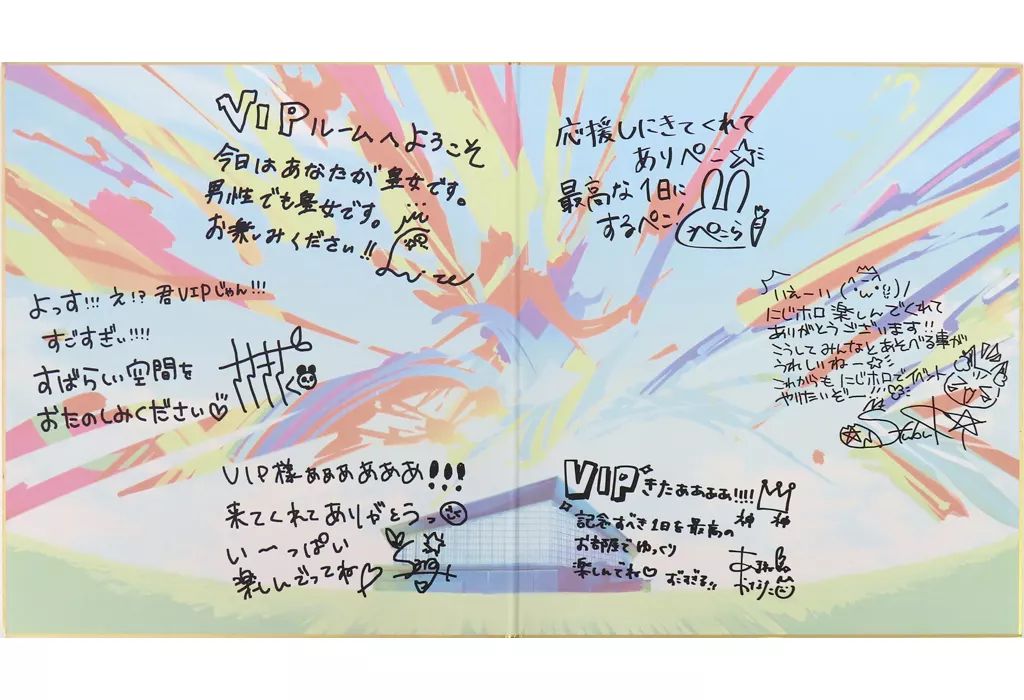 VIPルームへようこそ
今日はあなたが皇女です。
男性でも皇女です。
お楽しみください!!
応援しにきてくれて
ありぺこ☆
最高な1日に
するペコ!
ぺこら
よっす!!! え!? 君VIPじゃん!!!
すごすぎぃ!!!!
すばらしい空間を
おたのしみください♡
いえーい(^・ω・^)/
にじホロ楽しんでくれて
ありがとうございます!!
こうしてみんなとあそべる事が
うれしいねー☆
これからもにじホロでイベント
やりたいぞー!!!
VIP様ぁぁぁあああ!!!
来てくれてありがとうっ
い〜っぱい
楽しんでってね♡
VIPきたああああ!!!!
神 神
記念すべき1日を最高の
お部屋でゆっくり
楽しんでね♡